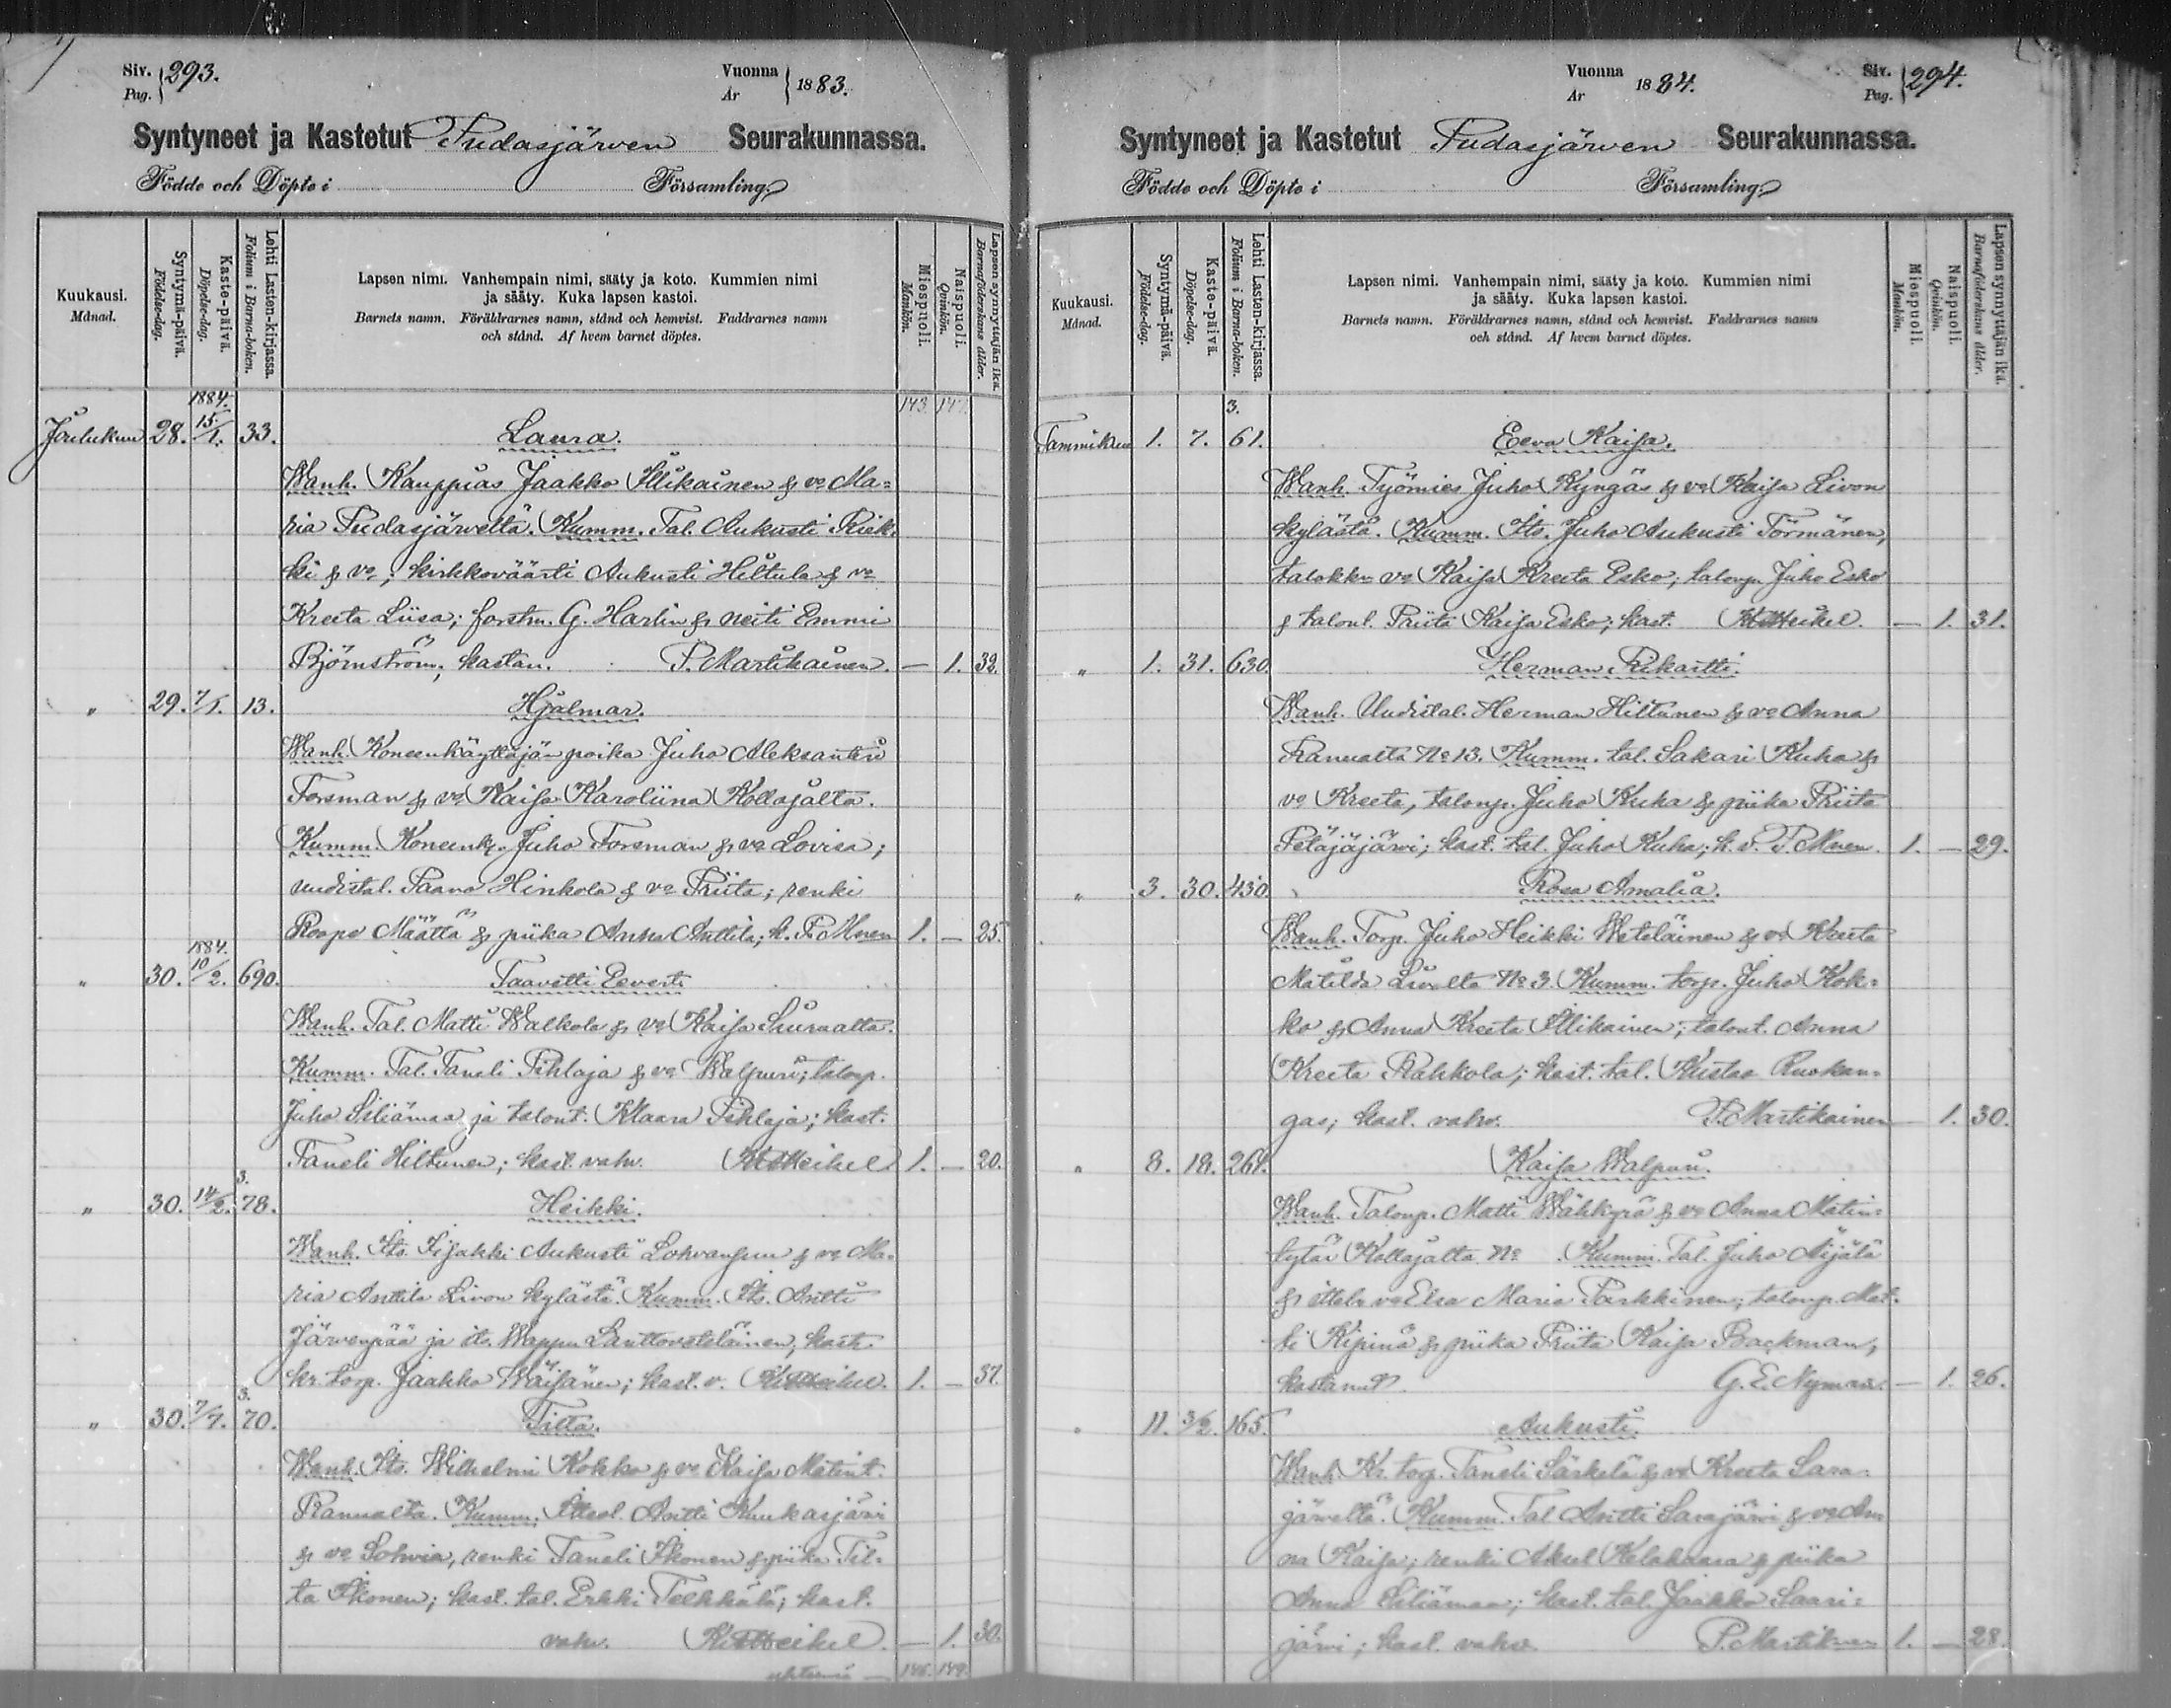 Siv. 293.
Pag.
Vuonna 1883.
År
Syntyneet ja Kastetut Pudasjärven Seurakunnassa.
Födde och Döpte i Församling.
Kuukausi.
Månad.
Syntymä-päivä.
Födelse-dag.
Kaste-päivä.
Döpelse-dag.
Lehti Lasten-kirjassa.
Folium i Barna-boken.
Lapsen nimi. Vanhempain nimi, sääty ja koto. Kummien nimi
ja sääty. Kuka lapsen kastoi.
Barnets namn. Föräldrarnes namn, stånd och hemvist. Faddrarnes namn
och stånd. Af hvem barnet döptes.
Miespuoli.
Mankön.
Naispuoli.
Qvinkön.
Lapsen synnyttäjän ikä.
Barnaföderskans ålder.
1884. 143. 147.
Joulukuu 28. 15/1. 33. Laura.
Wanh. Kauppias Jaakko Illikainen & vo Ma=
ria Pudasjärveltä. Kumm. Tal. Aukusti Riek=
ki & vo; kirkkoväärti Aukusti Hiltula & vo
Kreeta Liisa; forstm. G. Harlin & neiti Emmi
Björnström; kastan. P. Martikainen. — 1. 32.
" 29. 7/1. 13. Hjalmar.
Wanh. Koneenkäyttäjän poika Juho Aleksanteri
Forsman & vo Kaisa Karoliina Kollajalta.
Kumm. Koneenk. Juho Forsman & vo Lovisa;
uudistal. Paavo Hinkola & vo Priita; renki
Roope Määttä & piika Anna Anttila; k. P. Mnen 1. — 25.
1884.
" 30. 10/2. 690. Taavetti Eevert.
Wanh. Tal. Matti Walkola & vo Kaisa Siurualta.
Kumm. Tal. Taneli Pihlaja & vo Walpuri; talonp.
Juho Siliämaa ja talont. Klaara Pihlaja; kast.
Taneli Hiltunen; kast. vahv. Heikel 1. — 20.
3.
" 30. 14/2. 78. Heikki.
Wanh. Its. Iisakki Aukusti Lohvansuu & vo Ma=
ria Anttila Livon kylästä. Kumm. Its. Antti
Järvenpää ja its. Wappu kast.
kr. torp. Jaakko Wäisänen; kast. v. Heikel. 1. — 37.
3.
" 30. 7/7. 70. Tilta.
Wanh. Its. Wilhelmi Kokko & vo Kaisa Matint.
Ranualta. Kumm. Ittesl. Antti Kuukasjärvi
& vo Sohvia, renki Taneli Ikonen & piika Til=
ta Ikonen; kast. tal. Erkki Telkkälä; kast.
vahv. Heikel. — 1. 30.
yhteensä — 146. 149.
Vuonna 1884.
År
Siv. 294.
Pag.
Syntyneet ja Kastetut Pudasjärven Seurakunnassa.
Födde och Döpte i Församling.
Kuukausi.
Månad.
Syntymä-päivä.
Födelse-dag.
Kaste-päivä.
Döpelse-dag.
Lehti Lasten-kirjassa.
Folium i Barna-boken.
Lapsen nimi. Vanhempain nimi, sääty ja koto. Kummien nimi
ja sääty. Kuka lapsen kastoi.
Barnets namn. Föräldrarnes namn, stånd och hemvist. Faddrarnes namn
och stånd. Af hvem barnet döptes.
Miespuoli.
Mankön.
Naispuoli.
Qvinkön.
Lapsen synnyttäjän ikä.
Barnaföderskans ålder.
3.
Tammikuu 1. 7. 61. Eeva Kaisa.
Wanh. Työmies Juho Kyngäs & vo Kaisa Livon
kylästä. Kumm. Its. Juho Aukusti Törmänen,
talokkn vo Kaisa Kreeta Esko; talonp. Juho Esko
& talont. Priita Kaisa Esko; kast. Heikel. — 1. 31.
" 1. 31. 630. Herman Rikartti.
Wanh. Uudistal. Herman Hiltunen & vo Anna
Ranualta No 13. Kumm. tal. Sakari Kuha &
vo Kreeta, talonp. Juho Kuha & piika Priita
Petäjäjärvi; kast. tal. Juho Kuha; k. v. P. Mnen. 1. — 29.
" 3. 30. 430. Rosa Amalia.
Wanh. Torp. Juho Heikki Weteläinen & vo Kreeta
Matilda Livolta No 3. Kumm. torp. Juho Kok=
ko & Anna Kreeta Illikainen; talont. Anna
Kreeta Rahkola; kast. tal. Kustaa Ruokan=
gas; kast. vahv. P. Martikainen — 1. 30.
" 8. 18. 264. Kaisa Walpuri.
Wanh. Talonp. Matti Wähkyrä & vo Anna Matin=
tytär Kollajalta No Kumm. Tal. Juho Äijälä
& vo Elsa Maria Parkkinen; talonp. Mat=
ti Kipinä & piika Priita Kaisa Backman,
kastanut G. E. Nyman. — 1. 26.
" 11. 3/2. 165. Aukusti.
Wanh. Kr. torp. Taneli Särkelä & vo Kreeta Sara=
järveltä. Kumm. Tal. Antti Sarajärvi & vo An=
na Kaisa; renki Aksel Kelahaara & piika
Anna Siliämaa; kast. tal. Jaakko Saari=
järvi; kast. vahv. P. Martiknen 1. — 28.